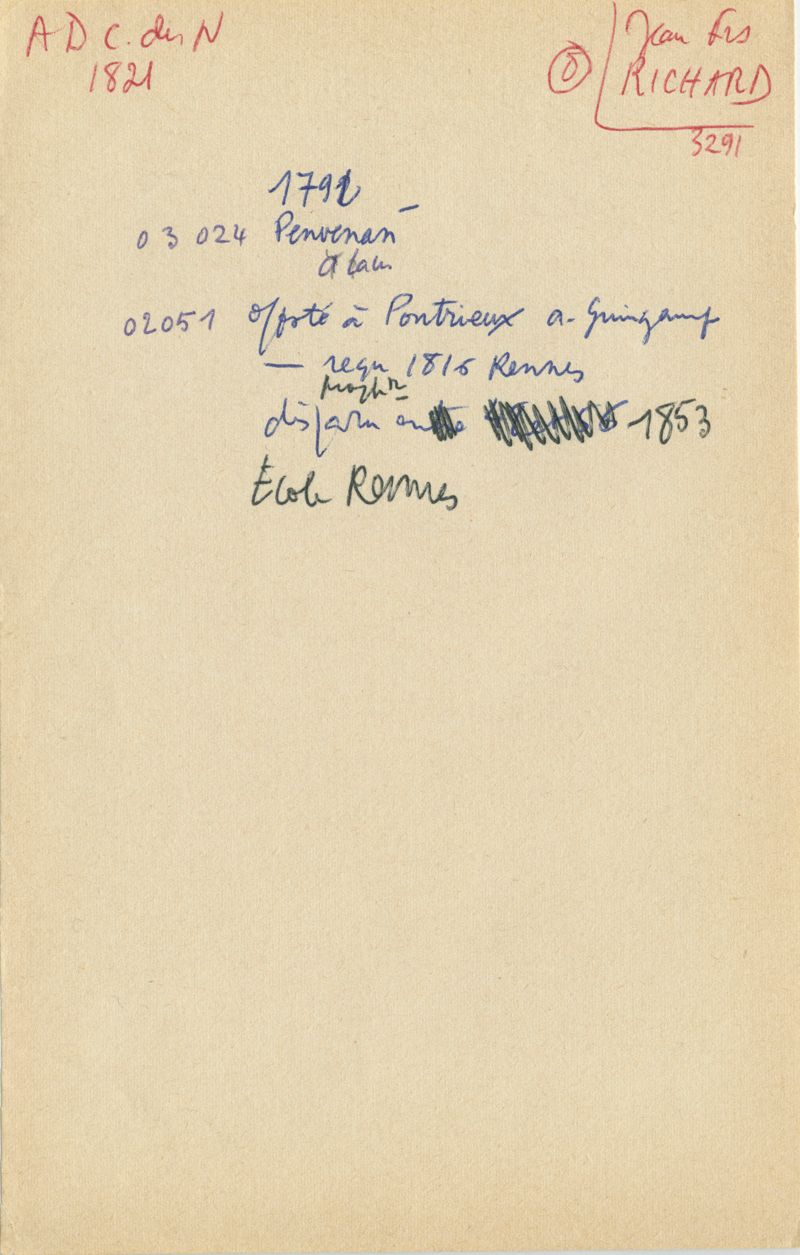 A D C. du N
1821
Jean Frs
RICHARD
3291
1792
03 024 Penvenan
02051 offsté à Pontrieux a. Guingamp
— reçu 1816 Rennes
disparu en 1853
École Rennes